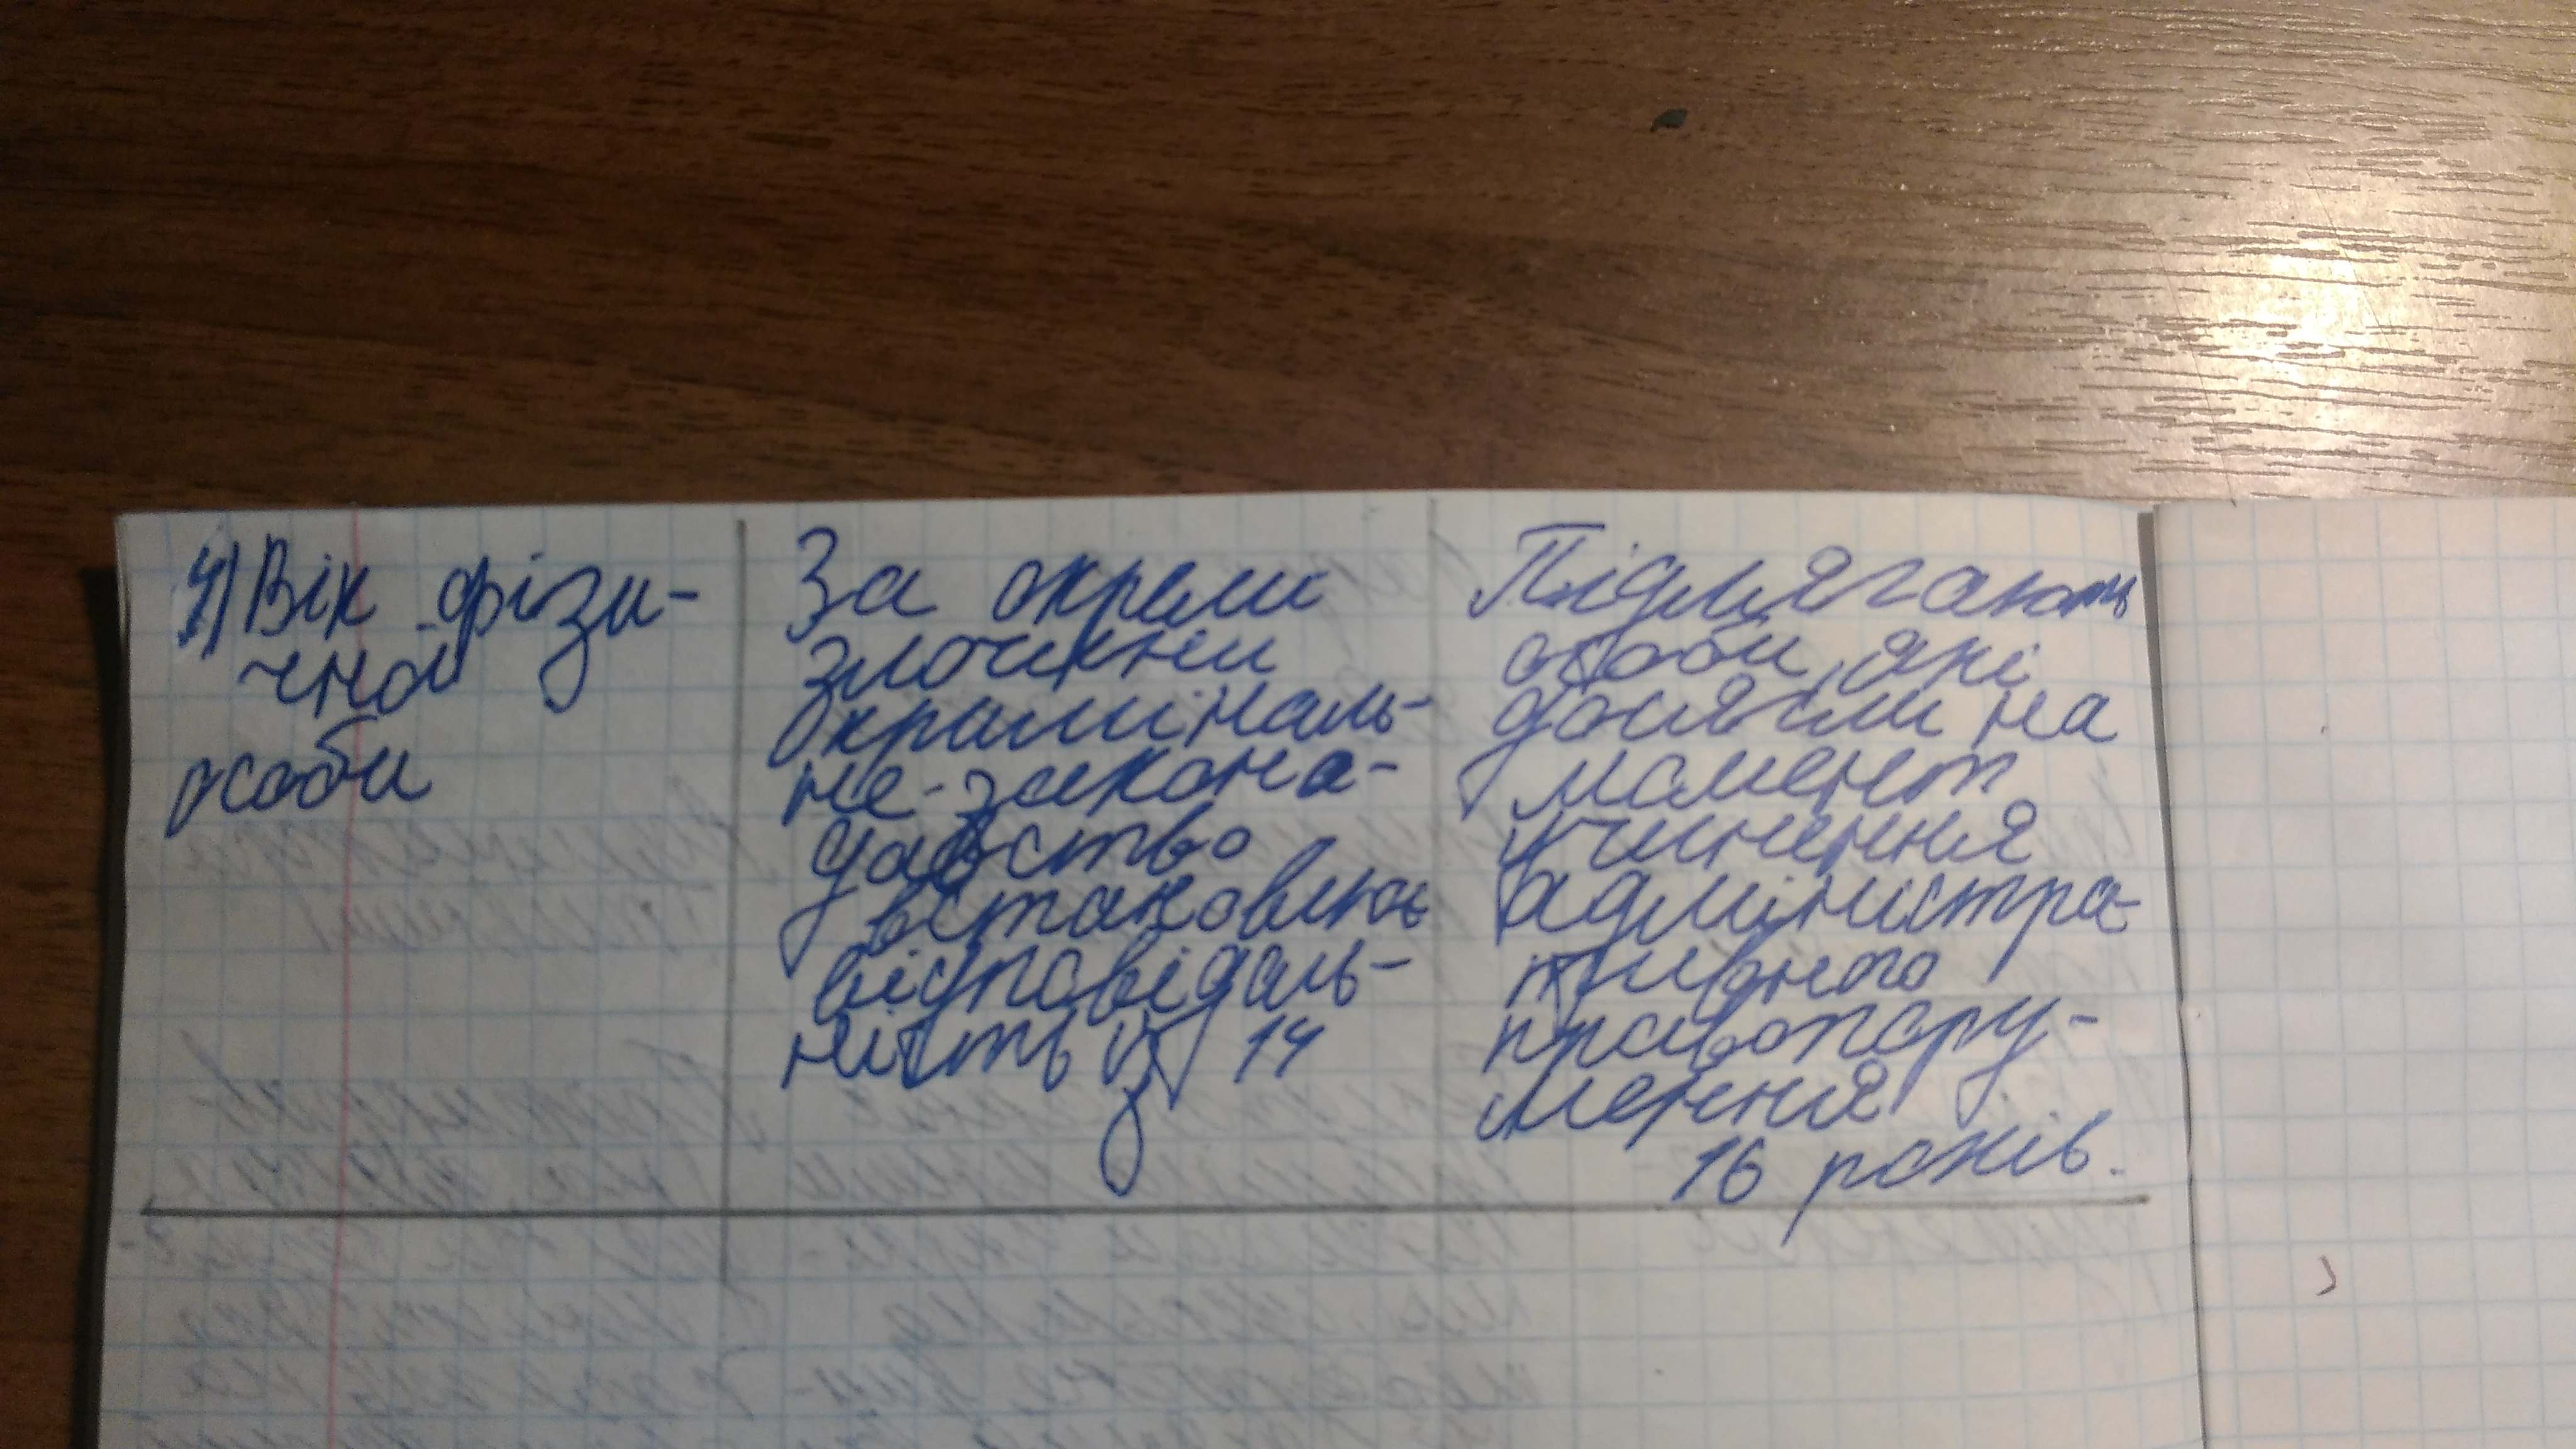 4) Вік фізи-
чної
особи
За окремі
злочини
криміналь-
не закона-
давство
встановлює
відповідаль-
ність із 14
Підлягають
особи, які
досягли на
момент
вчинення
адміністра-
тивного
правопору-
шення
16 років.